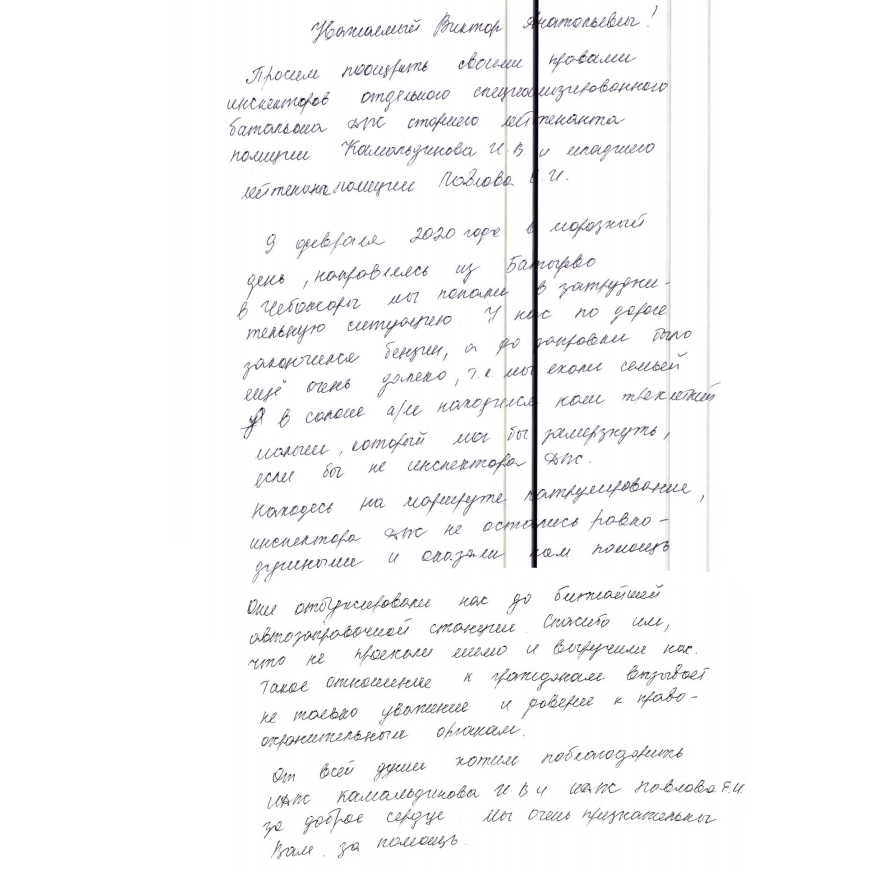 Уважаемый Виктор Анатольевич!
Просим поощрить своими правами
инспекторов отдельного специализированного
батальона ДПС старшего лейтенанта
полиции Камальдинова И.В. и младшего
лейтенанта полиции Павлова Е.И.
9 февраля 2020 года в морозный
день, направляясь из Батырево
в Чебоксары мы попали в затрудни-
тельную ситуацию У нас по дороге
закончился бензин, а до заправки было
ещё очень далеко, т.к. мы ехали семьёй
в салоне а/м находился наш трехлетний
малыш, который мог бы замерзнуть,
если бы не инспектора ДПС.
Находясь на маршруте патрулирования,
инспектора ДПС не остались равно-
душными и оказали нам помощь
Они отбуксировали нас до ближайшей
автозаправочной станции. Спасибо им,
что не проехали мимо и выручили нас.
Такое отношение к гражданам вызывает
не только уважение и доверие к право-
охранительным органам.
От всей души хотим поблагодарить
ИДПС Камальдинова И В и ИДПС Павлова Е.И
за доброе сердце. Мы очень признательны
Вам за помощь.